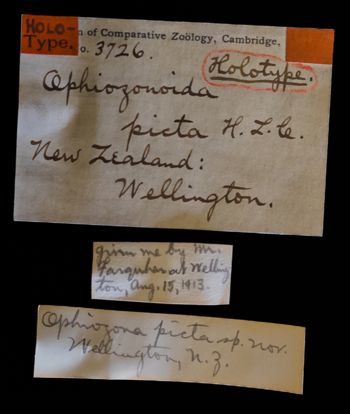 HOLO-
Type.
n of Comparative Zoölogy, Cambridge.
o. 3726.
Holotype.
Ophiozonoida
picta H. L. C.
New Zealand:
Wellington.
given me by Mr.
Farquhar at Welling
ton, Aug. 15, 1913.
Ophiozona picta sp. nov.
Wellington, N. Z.